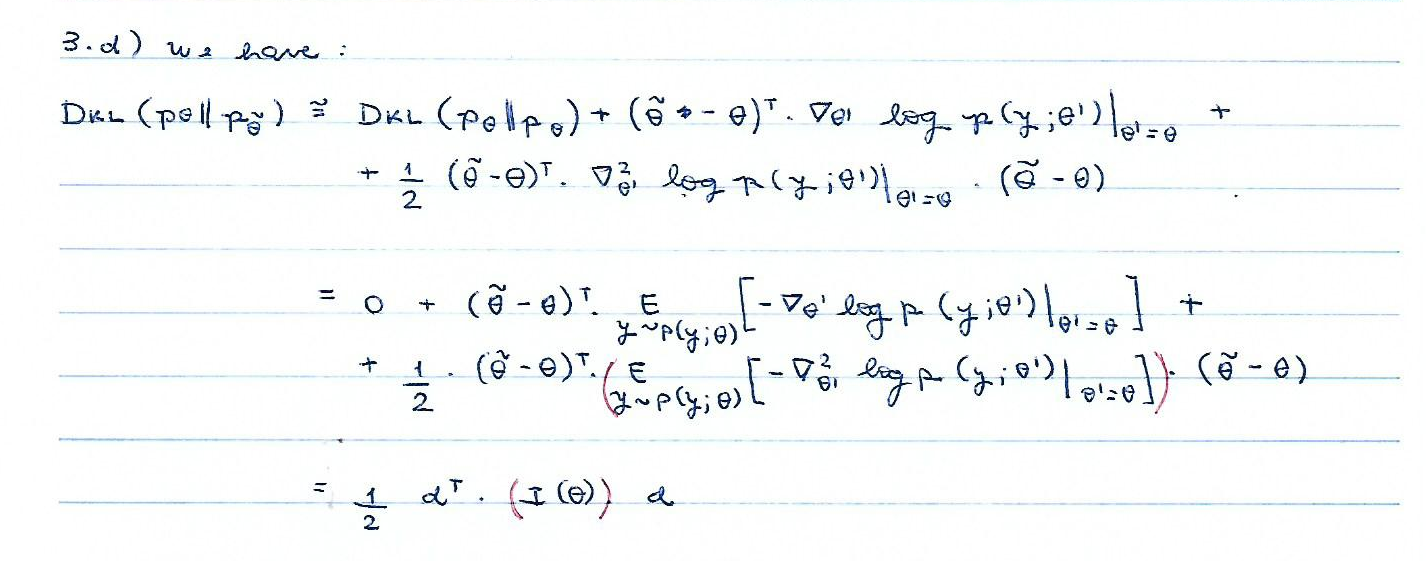 3.d) we have :
DKL (pθ || pθ̃) ≅ DKL (pθ || pθ) + (θ̃ - θ)ᵀ. ∇θ' log p(y;θ')|θ'=θ +
+ 1/2 (θ̃ - θ)ᵀ. ∇²θ' log p(y;θ')|θ'=θ . (θ̃ - θ)
= 0 + (θ̃ - θ)ᵀ. E y~p(y;θ) [-∇θ' log p (y;θ')|θ'=θ] +
+ 1/2 . (θ̃ - θ)ᵀ. (E y~p(y;θ) [-∇²θ' log p (y;θ')|θ'=θ]). (θ̃ - θ)
= 1/2 dᵀ. (I(θ)) d